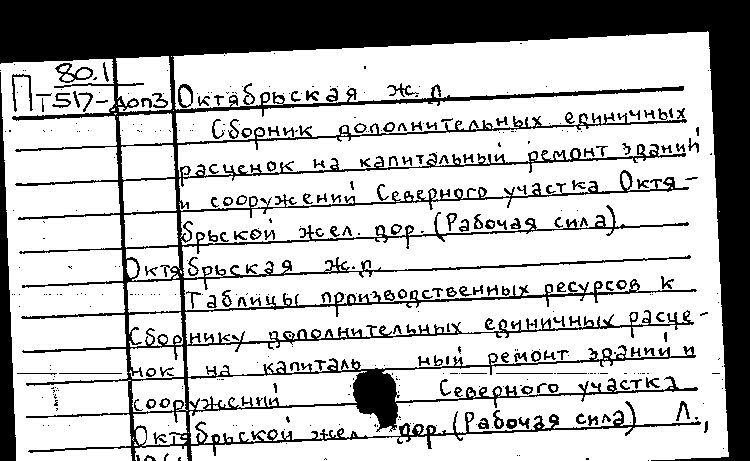 80.1
П Т517-доп3 Октябрьская ж.д.
Сборник дополнительных единичных
расценок на капитальный ремонт зданий
и сооружений Северного участка Октя-
брьской жел. дор. (Рабочая сила).
Октябрьская ж.д.
Таблицы производственных ресурсов к
Сборнику дополнительных единичных расце-
нок на капиталь ный ремонт зданий и
сооружений Северного участка
Октябрьской жел. дор. (Рабочая сила) Л.,